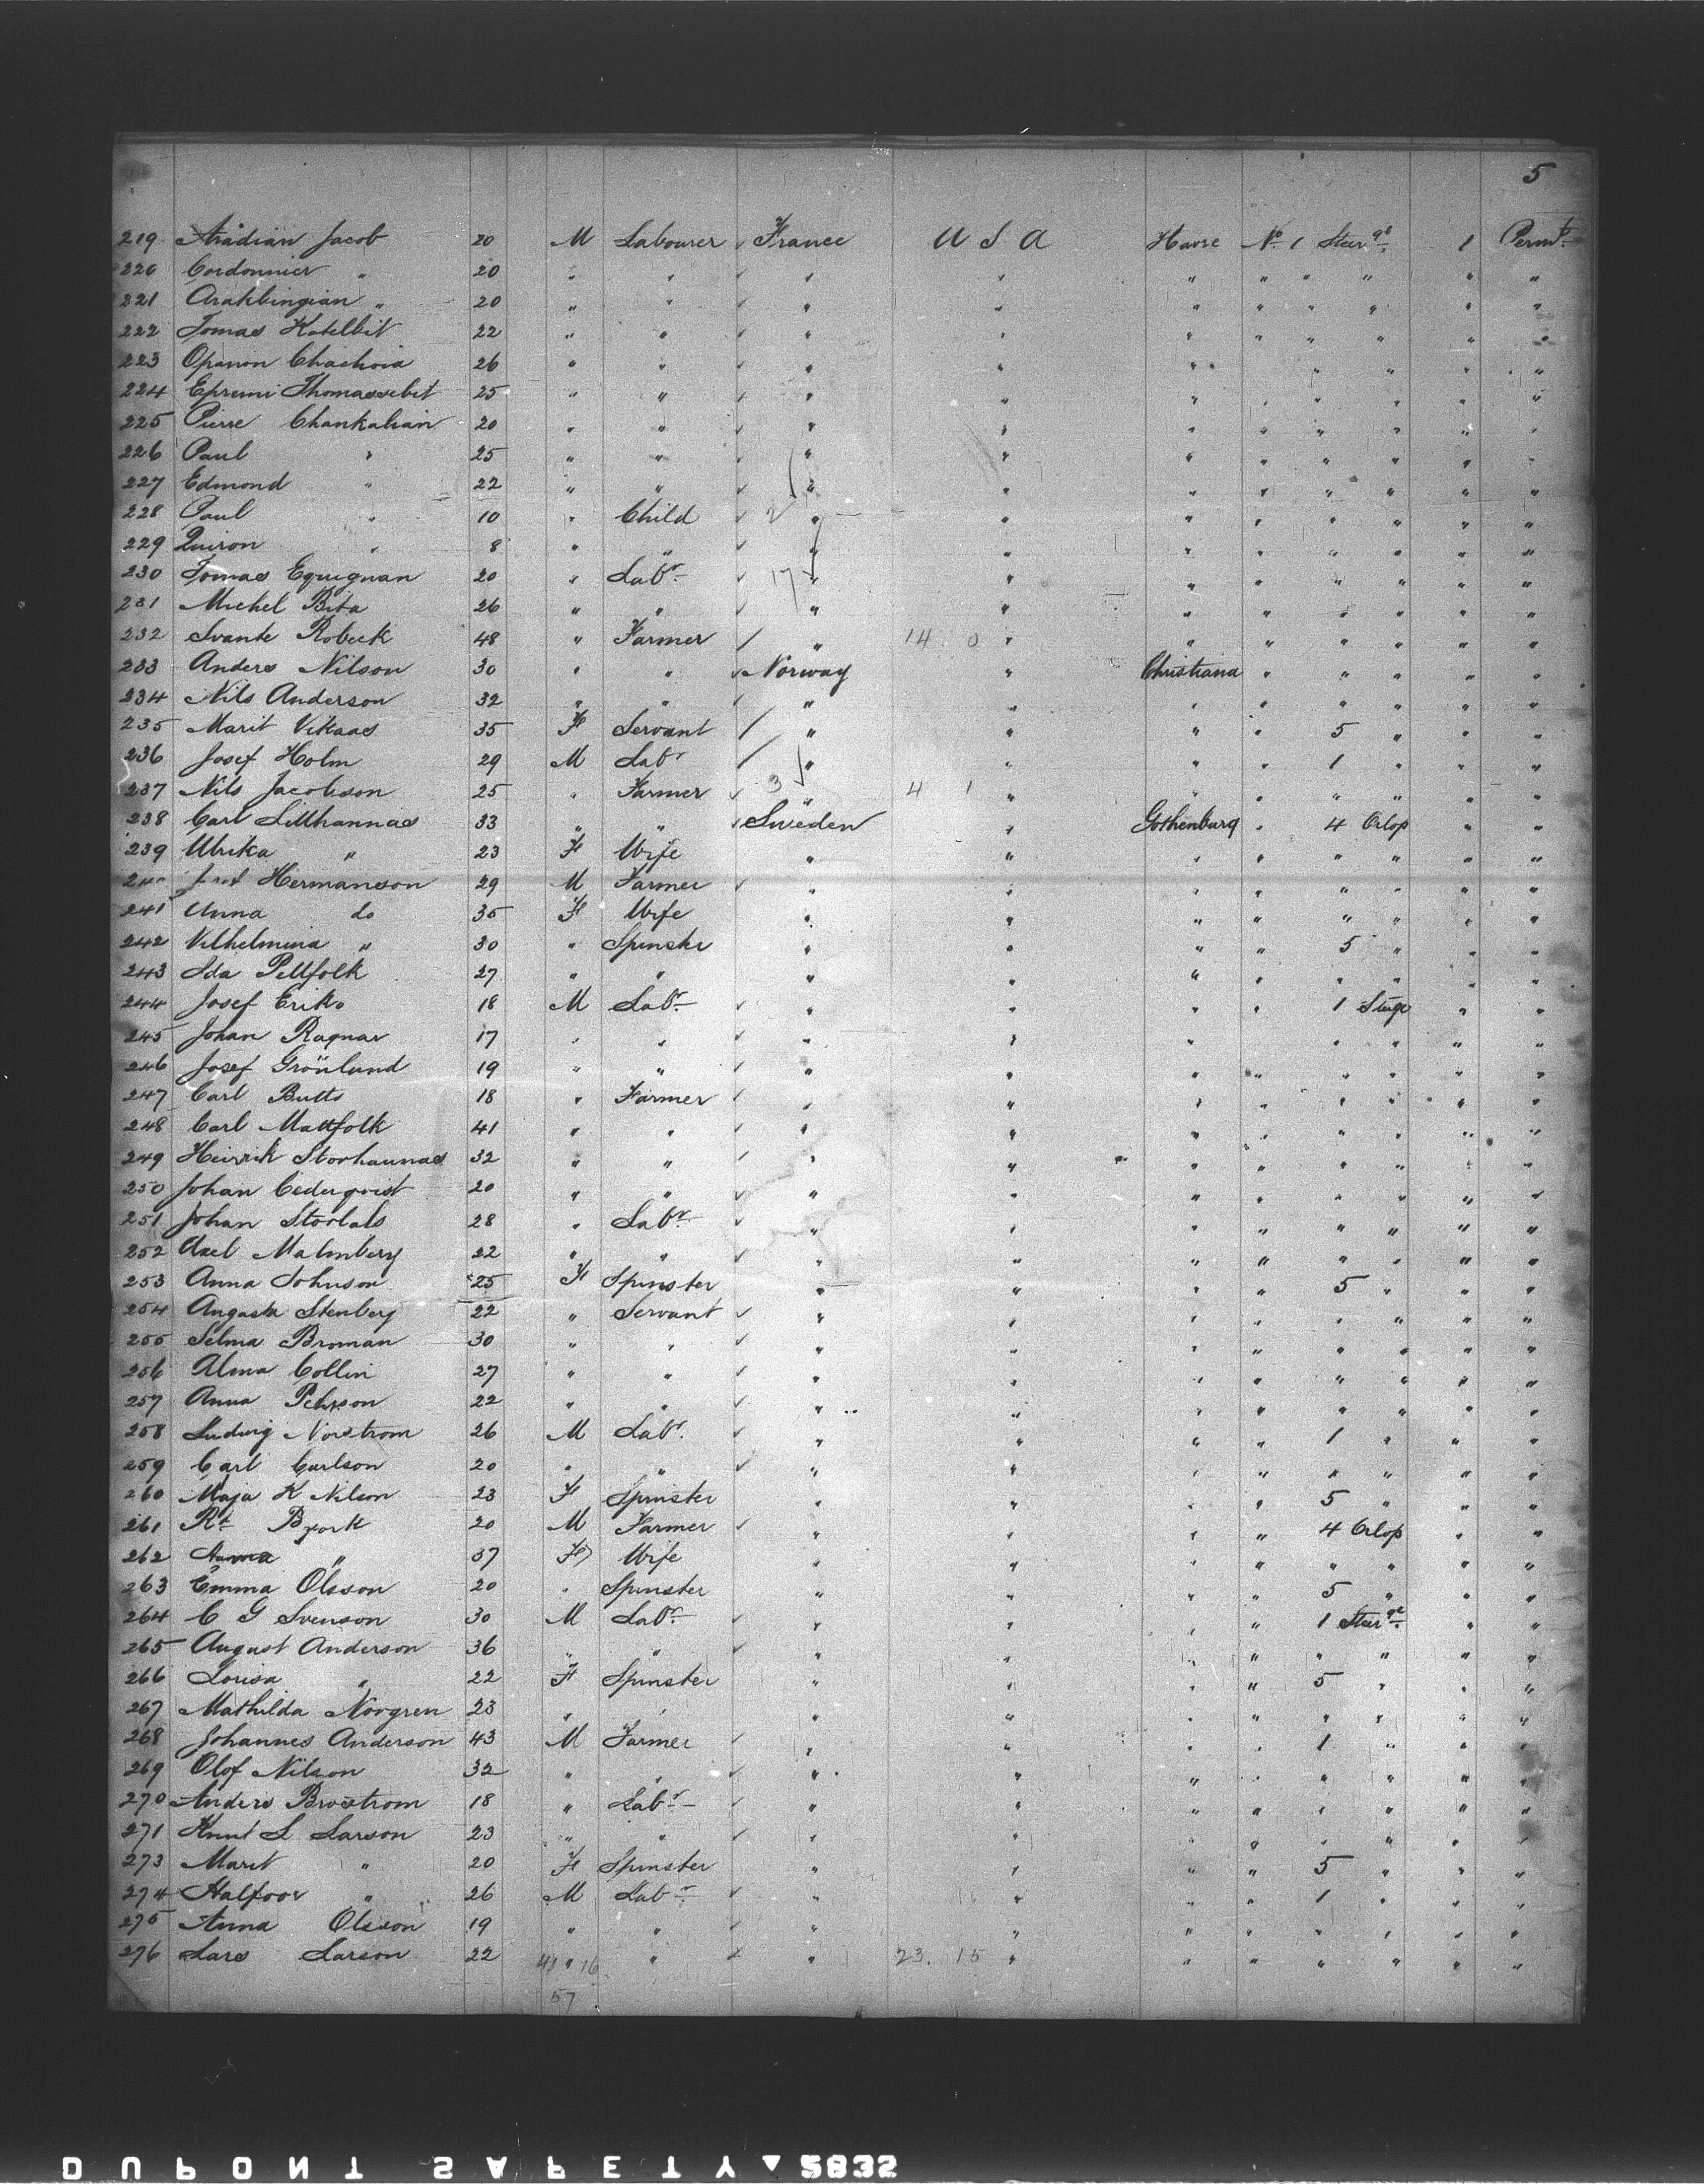 5
219 Aradian Jacob 20 M Labourer ✓ France U S A Havre No 1 Steerge 1 Permt
220 Cordonnier " 20 " " ✓ " " " " " " " "
221 Arakbingian " 20 " " ✓ " " " " " " " "
222 Tomas Katelbit 22 " " ✓ " " " " " " " "
223 Opanon Chachoia 26 " " ✓ " " " " " " "
224 Epremi Thomassebit 25 " " ✓ " " " " " " " "
225 Pierre Chankalian 20 " " ✓ " " " " " " " "
226 Paul " 25 " " ✓ " " " " " " " "
227 Edmond " 22 " " ✓ " " " " " " " "
228 Paul " 10 " Child ✓ 2 " " " " " " " "
229 Quiron " 8 " " ✓ " " " " " " " "
230 Tomas Equignan 20 " Labr ✓ 17 " " " " " " " "
231 Michel Bita 26 " " ✓ " " " " " " " "
232 Svante Robeck 48 " Farmer / " 14 0 " " " " " " "
233 Anders Nilson 30 " " ✓ Norway " Christiana " " " " "
234 Nils Anderson 32 " " ✓ " " " " " " " "
235 Marit Vikaas 35 F Servant / " " " " 5 " " "
236 Josef Holm 29 M Labr / " " " " 1 " " "
237 Nils Jacobson 25 " Farmer ✓ 3 " 4 1 " " " " " " "
238 Carl Lillhannas 33 " " ✓ Sweden " Gothenburg " 4 Orlop " "
239 Ulrika " 23 F Wife " " " " " " " "
Hermanson 29 M Farmer ✓ " " " " " " " "
241 Anna do 35 F Wife " " " " " " " "
242 Vilhelmina " 30 " Spinster " " " " 5 " " "
243 Ida Pellfolk 27 " " " " " " " " " "
244 Josef Eriks 18 M Labr ✓ " " " " 1 Stege " "
245 Johan Ragnar 17 " " ✓ " " " " " " " "
246 Josef Grönlund 19 " " ✓ " " " " " " " "
247 Carl Butts 18 " Farmer ✓ " " " " " " " "
248 Carl Mattfolk 41 " " ✓ " " " " " " " "
249 Heinrik Storhannas 32 " " ✓ " " " " " " " "
250 Johan Cederqvist 20 " " ✓ " " " " " " " "
251 Johan Storbals 28 " Labr ✓ " " " " " " " "
252 Axel Malmberg 22 " " ✓ " " " " " " " "
253 Anna Johnson 25 F Spinster " " " " 5 " " "
254 Augusta Stenberg 22 " Servant ✓ " " " " " " " "
255 Selma Broman 30 " " ✓ " " " " " " " "
256 Alma Collin 27 " " ✓ " " " " " " " "
257 Anna Pehrson 22 " " ✓ " " " " " " " "
258 Ludwig Norstrom 26 M Labr. ✓ " " " " 1 " " "
259 Carl Carlson 20 " " ✓ " " " " " " " "
260 Maja K Nilson 23 F Spinster " " " " 5 " " "
261 Rt Bjork 20 M Farmer ✓ " " " " 4 Orlop " "
262 Anna " 37 F Wife " " " " " " " "
263 Emma Olsson 20 " Spinster " " " " 5 " " "
264 C G Svenson 30 M Labr ✓ " " " " 1 Steerge " "
265 August Anderson 36 " " ✓ " " " " " " " "
266 Lovisa " 22 F Spinster " " " " 5 " " "
267 Mathilda Norgren 23 " " " " " " " " " "
268 Johannes Anderson 43 M Farmer ✓ " " " " 1 " " "
269 Olof Nilson 32 " " ✓ " " " " " " " "
270 Anders Broström 18 " Labr ✓ " " " " " " " "
271 Knut L Larson 23 " " ✓ " " " " " " " "
273 Marit " 20 F Spinster " " " " 5 " " "
274 Halfoor " 26 M Labr ✓ " " " " 1 " " "
275 Anna Olsson 19 " " ✓ " " " " " " " "
276 Lars Larson 22 41 " 16 " ✓ " 23. 15 " " " " " " "
57
DUPONT SAFETY 5832